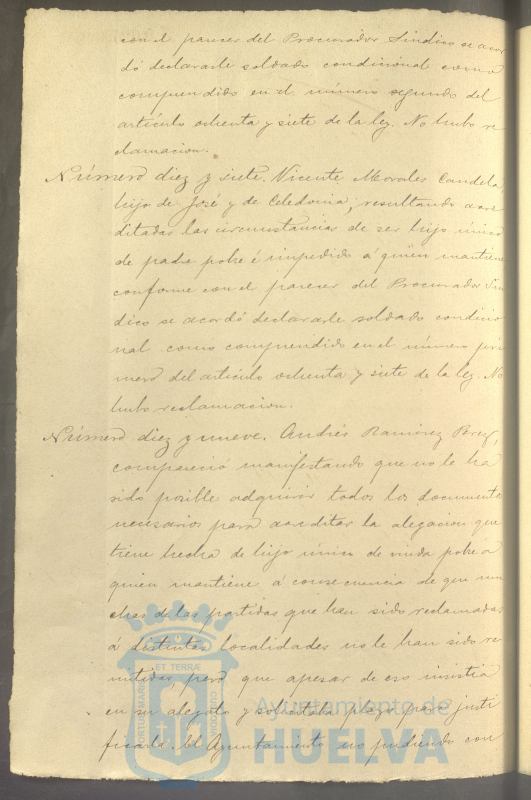 con el parecer del Procurador Sindico se acor
dó declararle soldado condicional como
comprendido en el número segundo del
artículo ochenta y siete de la ley. No hubo re
clamacion.
Número diez y siete. Vicente Morales Candela,
hijo de José y de Celedonia; resultando acre
ditadas las circumstancias de ser hijo único
de padre pobre é impedido á quien mantiene
conforme con el parecer del Procurador Sin
dico se acordó declararle soldado condicio
nal como comprendido en el número pri
mero del artículo ochenta y siete de la ley. No
hubo reclamacion.
Número diez y nueve. Andrés Ramirez Perez,
compareció manifestando que no le ha
sido posible adquirir todos los documentos
necesarios para acreditar la alegacion que
tiene hecha de hijo único de viuda pobre á
quien mantiene á consecuencia de que mu
chas de las partidas que han sido reclamadas
á distintas localidades no le han sido re
mitidas, pero que apesar de eso insistia
en su alegato y solicitaba plazo para justi
ficarla. El Ayuntamiento no pudiendo con
ET TERRÆ
PORTUS MARIS
CUSTODIA
Ayuntamiento de
HUELVA